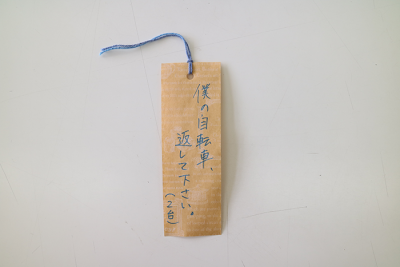 僕の自転車、
返して下さい。
（2台）